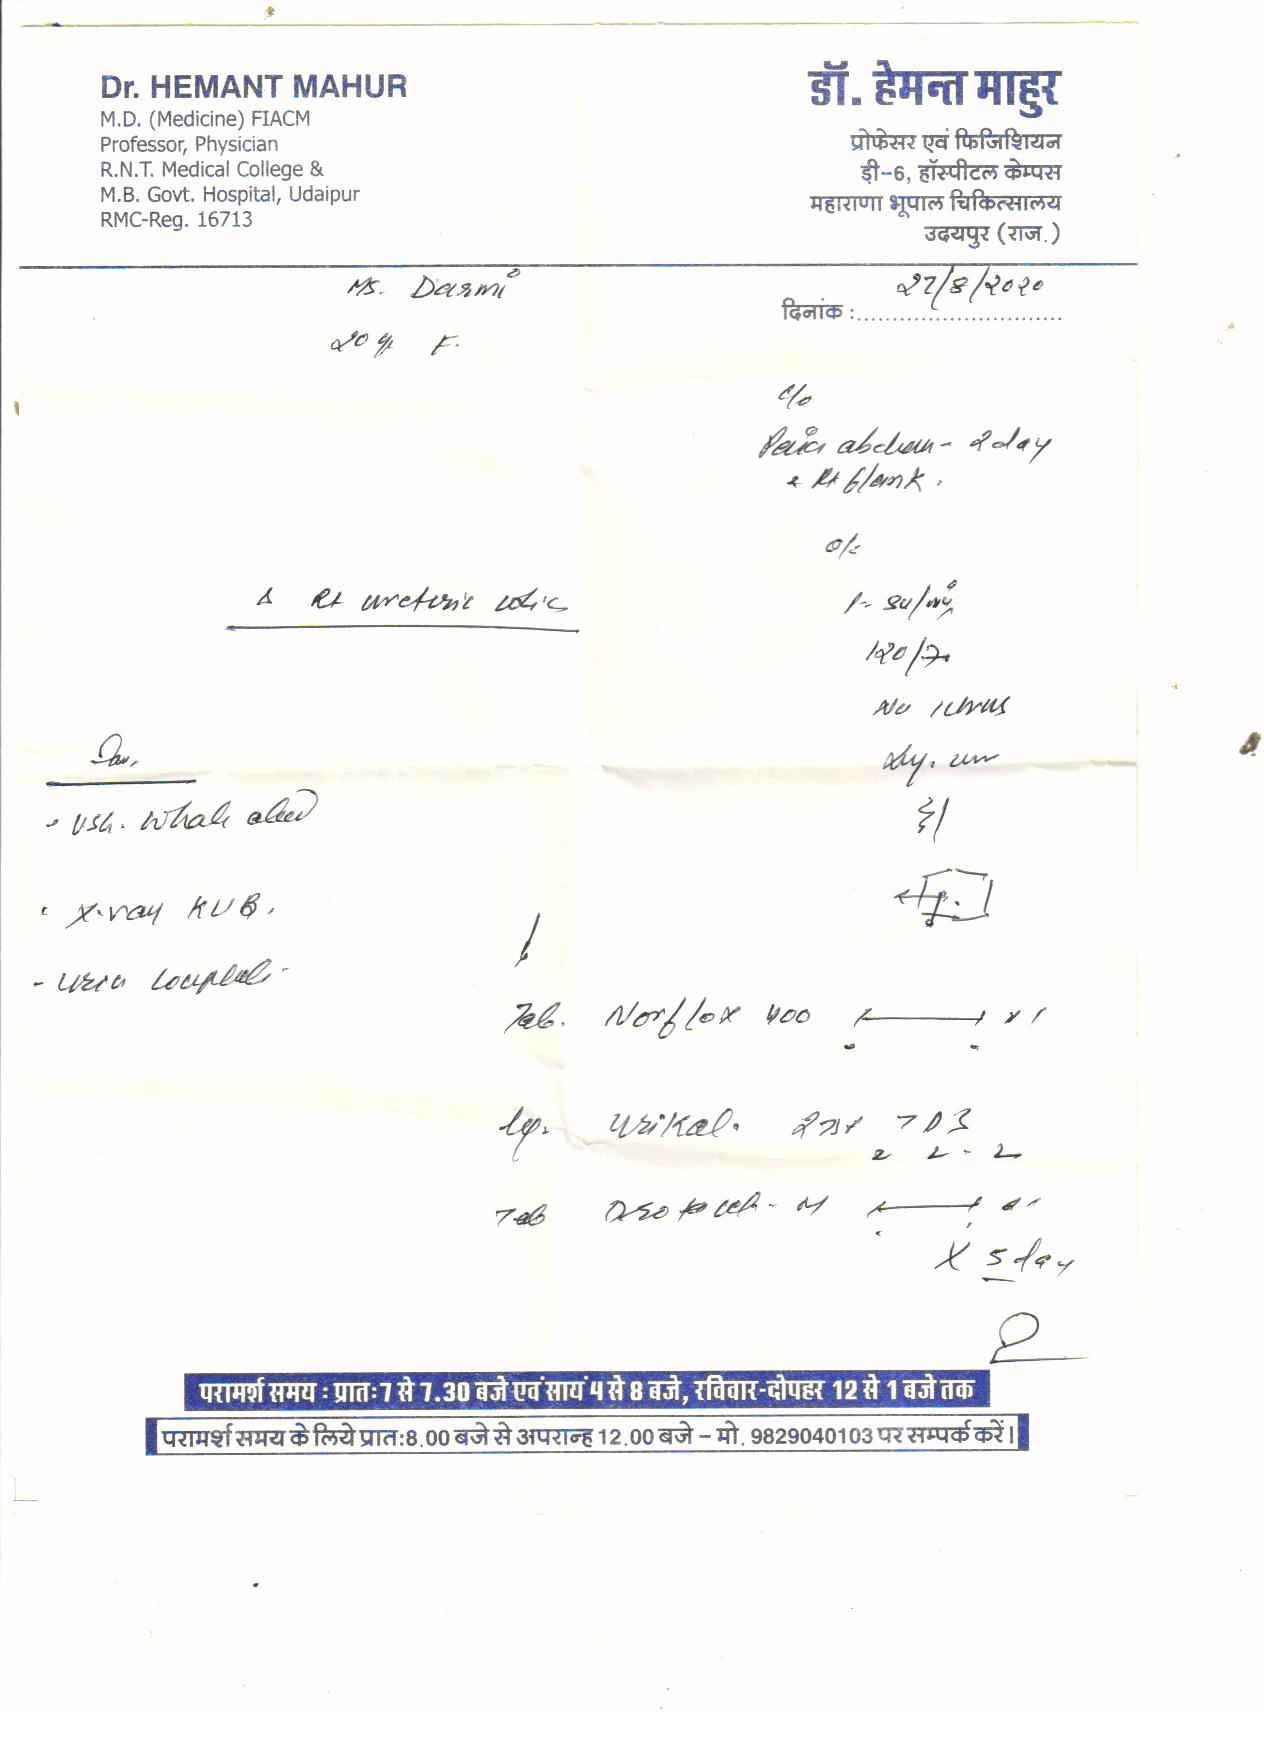 Dr. HEMANT MAHUR
M.D. (Medicine) FIACM
Professor, Physician
R.N.T. Medical College &
M.B. Govt. Hospital, Udaipur
RMC-Reg. 16713
डॉ. हेमन्त माहुर
प्रोफेसर एवं फिजिशियन
डी-6, हॉस्पीटल केम्पस
महाराणा भूपाल चिकित्सालय
उदयपुर (राज.)
Ms. Dasmi
दिनांक : 27/8/2020
20 yr F.
c/o
Pain abdomen - 2 day
Rt flank.
o/e
Δ Rt ureteric colic
120/70
No icterus
Inv.
- USG. Whole abd
- X-ray KUB.
- Urin complete
Tab. Norflox 400
Syp. Urikal. 2 TDS
2 2 - 2
Tab - M
X 5 day
परामर्श समय : प्रातः 7 से 7.30 बजे एवं सायं 4 से 8 बजे, रविवार-दोपहर 12 से 1 बजे तक
परामर्श समय के लिये प्रात:8.00 बजे से अपरान्ह 12.00 बजे – मो. 9829040103 पर सम्पर्क करें।